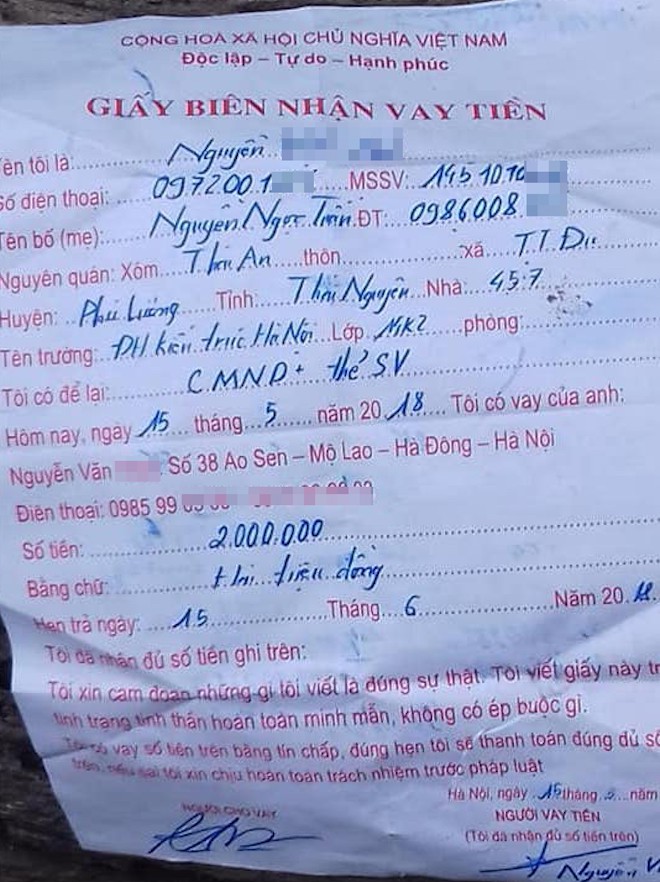 CỘNG HOÀ XÃ HỘI CHỦ NGHĨA VIỆT NAM
Độc lập – Tự do – Hạnh phúc
GIẤY BIÊN NHẬN VAY TIỀN
Tên tôi là: Nguyễn
Số điện thoại: 097200 1 MSSV: 1451010
Tên bố (mẹ): Nguyễn Ngọc Trân ĐT: 0986008
Nguyên quán: Xóm Thái An thôn xã T.T Đu
Huyện: Phú Lương Tỉnh: Thái Nguyên Nhà: 457
Tên trường: ĐH kiến trúc Hà Nội Lớp phòng:
Tôi có để lại: CMND + thẻ SV
Hôm nay, ngày 15 tháng 5 năm 20 18 Tôi có vay của anh:
Nguyễn Văn Số 38 Ao Sen – Mộ Lao – Hà Đông – Hà Nội
Điện thoại: 0985 99
Số tiền: 2.000.000
Bằng chữ: Hai triệu đồng
Hẹn trả ngày: 15 Tháng 6 Năm 20 18
Tôi đã nhận đủ số tiền ghi trên:
Tôi xin cam đoan những gì tôi viết là đúng sự thật. Tôi viết giấy này tr
tình trạng tinh thần hoàn toàn minh mẫn, không có ép buộc gì.
Tôi có vay số tiền trên bằng tín chấp, đúng hẹn tôi sẽ thanh toán đúng đủ số
trên, nếu sai tôi xin chịu hoàn toàn trách nhiệm trước pháp luật
Hà Nội, ngày 15 tháng 5 năm
NGƯỜI CHO VAY
NGƯỜI VAY TIỀN
(Tôi đã nhận đủ số tiền trên)
Nguyễn V